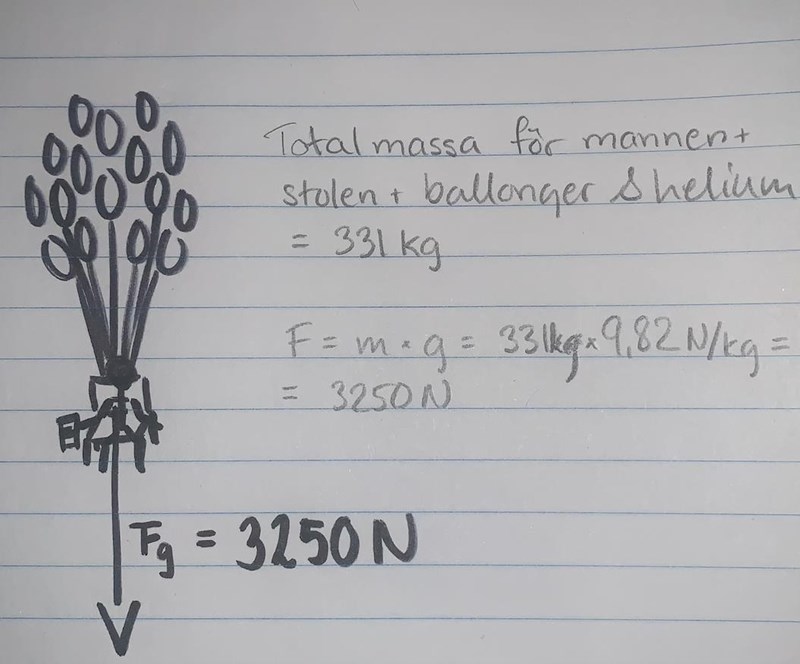 Total massa för mannen +
stolen + ballonger & helium
= 331 kg
F = m × g = 331kg × 9,82 N/kg =
= 3250 N
Fg = 3250 N